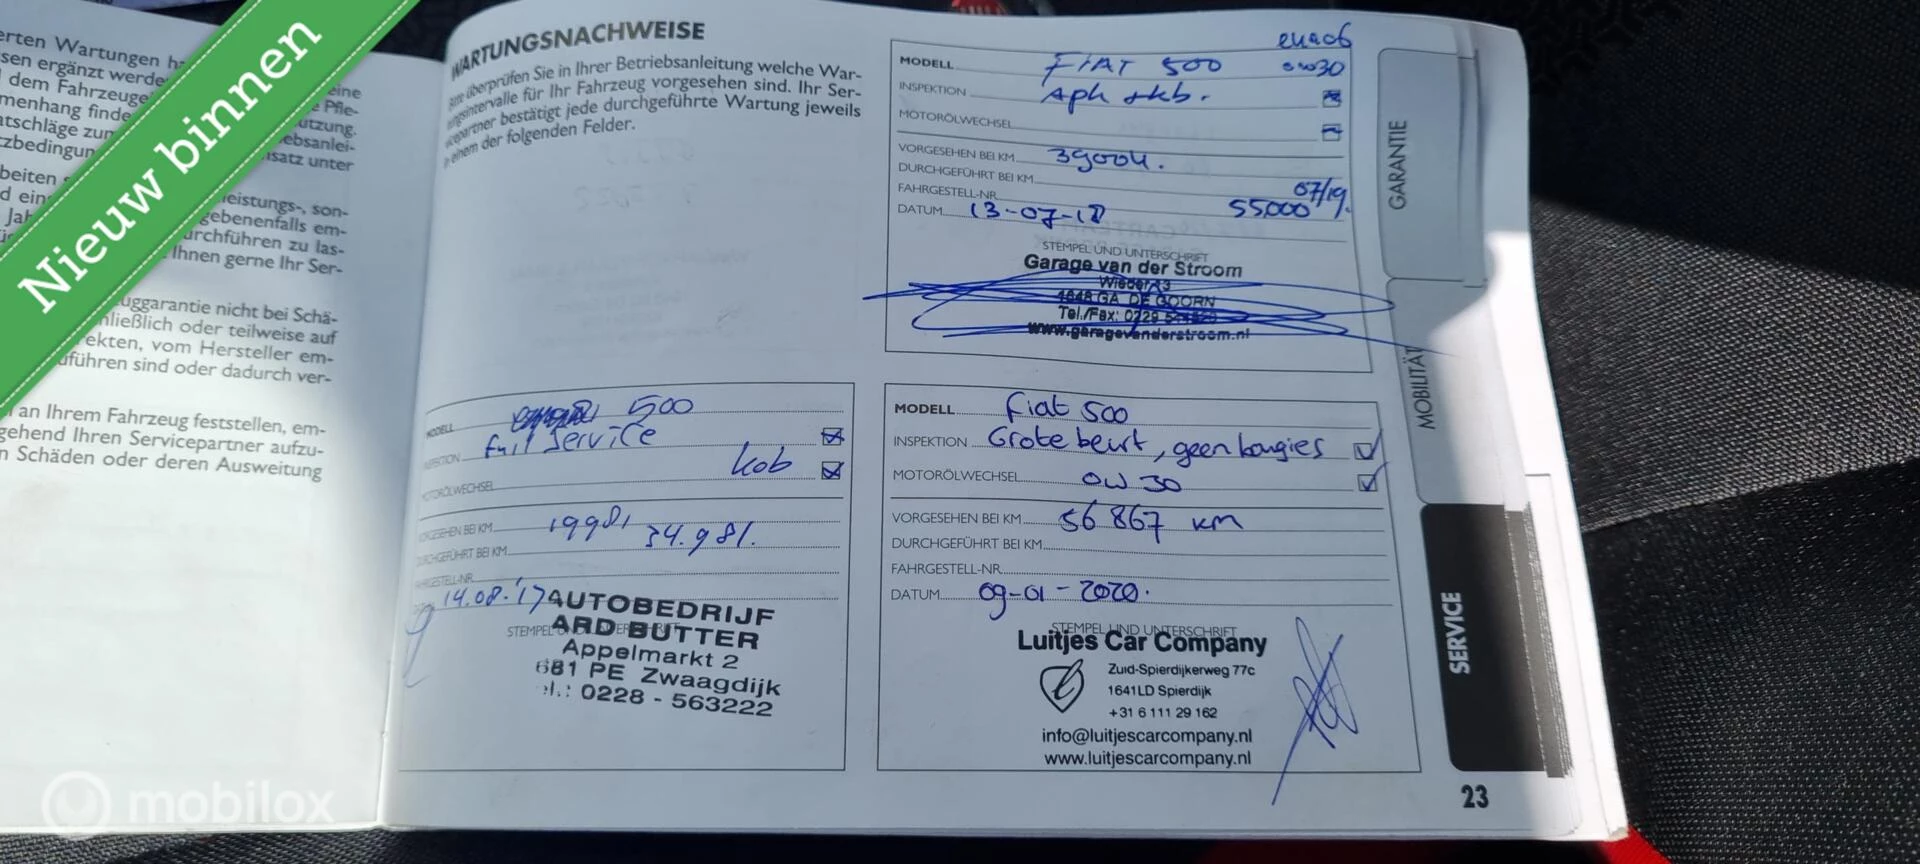 Nieuw binnen
erten Wartungen ha
sen ergänzt werde
dem Fahrzeuge
menhang finde
atschläge zum
zbedingun
eine
Pfle-
utzung.
ebsanlei-
nsatz unter
beiten
d ein
Jah
leistungs-, son-
gebenenfalls em-
urchführen zu las-
Ihnen gerne Ihr Ser-
uggarantie nicht bei Schä-
hließlich oder teilweise auf
ekten, vom Hersteller em-
uführen sind oder dadurch ver-
an Ihrem Fahrzeug feststellen, em-
gehend Ihren Servicepartner aufzu-
n Schäden oder deren Ausweitung
mobilox
WARTUNGSNACHWEISE
überprüfen Sie in Ihrer Betriebsanleitung welche War-
tungsintervalle für Ihr Fahrzeug vorgesehen sind. Ihr Ser-
vicepartner bestätigt jede durchgeführte Wartung jeweils
in einem der folgenden Felder.
MODELL FIAT 500 0W30
INSPEKTION Aph
MOTORÖLWECHSEL
VORGESEHEN BEI KM
DURCHGEFÜHRT BEI KM 07/19.
FAHRGESTELL-NR. 55000
DATUM 13-07-18
STEMPEL UND UNTERSCHRIFT
Garage van der Stroom
Wieder 13
1648 GA DE GOORN
Tel./Fax: 0229
www.garagevanderstroom.nl
MODELL 500
INSPEKTION Full Service
MOTORÖLWECHSEL
VORGESEHEN BEI KM 19981
DURCHGEFÜHRT BEI KM 34.981.
FAHRGESTELL-NR.
14.08.'17
STEMPEL UND UNTERSCHRIFT
AUTOBEDRIJF
ARD BUTTER
Appelmarkt 2
681 PE Zwaagdijk
el.: 0228 - 563222
MODELL Fiat 500
INSPEKTION Grote beurt, geen bougies
MOTORÖLWECHSEL 0W 30
VORGESEHEN BEI KM 56867 km
DURCHGEFÜHRT BEI KM
FAHRGESTELL-NR.
DATUM 09-01-2020.
STEMPEL UND UNTERSCHRIFT
Luitjes Car Company
Zuid-Spierdijkerweg 77c
1641LD Spierdijk
+31 6 111 29 162
info@luitjescarcompany.nl
www.luitjescarcompany.nl
GARANTIE
MOBILITÄT
SERVICE
23